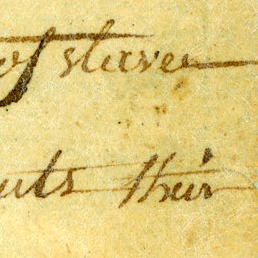 of slaves
uts their